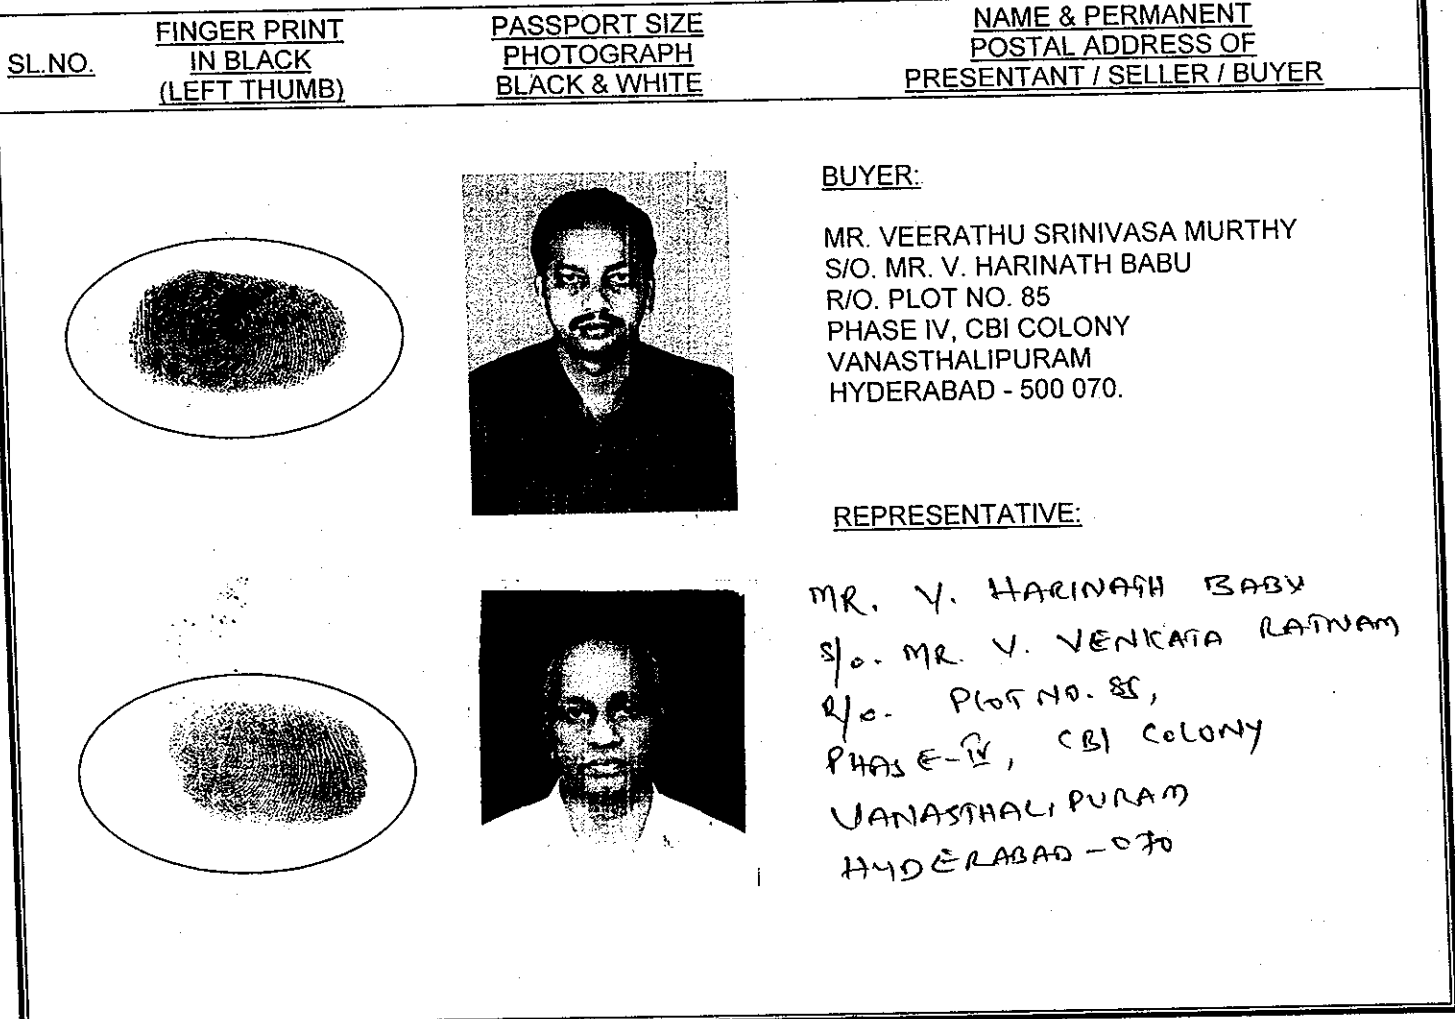 SL.NO.
FINGER PRINT
IN BLACK
(LEFT THUMB)
PASSPORT SIZE
PHOTOGRAPH
BLACK & WHITE
NAME & PERMANENT
POSTAL ADDRESS OF
PRESENTANT / SELLER / BUYER
BUYER:
MR. VEERATHU SRINIVASA MURTHY
S/O. MR. V. HARINATH BABU
R/O. PLOT NO. 85
PHASE IV, CBI COLONY
VANASTHALIPURAM
HYDERABAD - 500 070.
REPRESENTATIVE:
MR. V. HARINATH BABU
S/o. MR. V. VENKATA RATNAM
R/o. PLOT NO. 85,
PHASE-IV, CBI COLONY
VANASTHALIPURAM
HYDERABAD-070